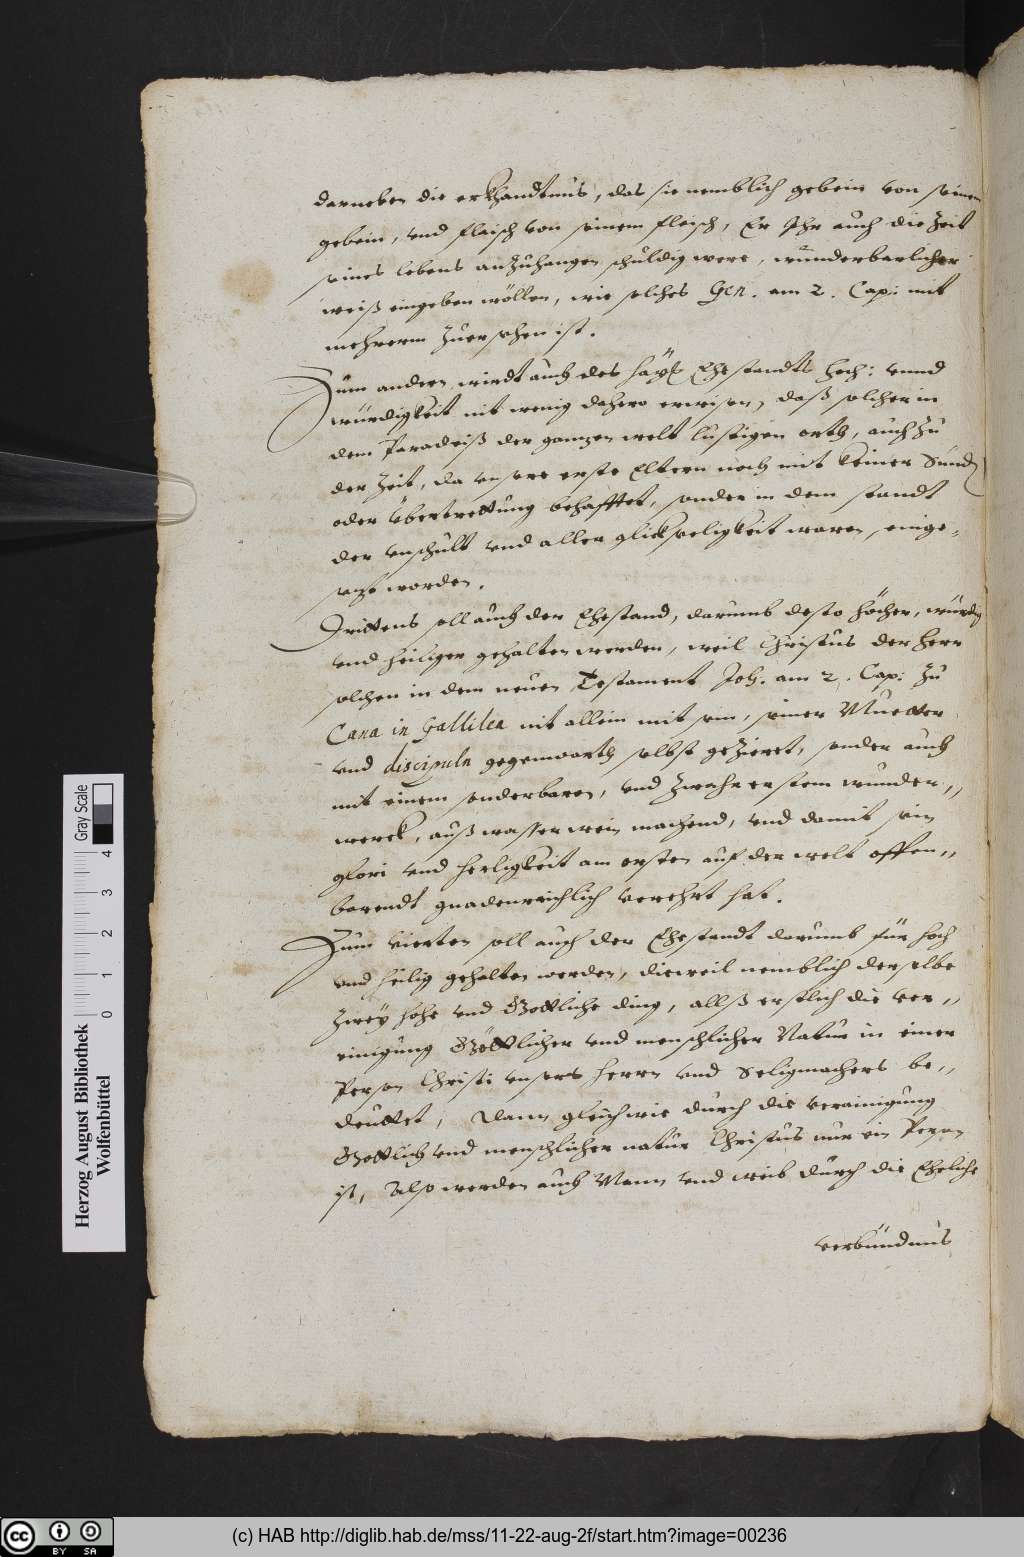 darneben die erkhandtnus, das sie nemblich gebein von seinen
gebein, und fleisch von seinem fleisch, Er Ihr auch die Zeit
seines lebens anzuhangen schuldig were, wunderbarlicher
weiß eingeben wöllen, wie solches Gen. am 2. Cap: mit
mehrerm zuersehen ist.
Zum andern, wirdt auch des Ehestandts hoch: unnd
würdigkeit nit wenig dahero erwisen, daß solcher in
dem Paradeiß der ganzen welt lustigen orth, auch zu
der Zeit, da unsere erste Eltern noch mit keiner Sünd
oder übertrettung behafftet, sonder in dem standt
der unschult und aller glickseeligkeit waren, einge-
sezt worden.
Drittens soll auch der Ehestand, darumb desto höcher, würdig
und heiliger gehalten werden, weil Christus der Herr
solchen in dem neuen Testament Joh. am 2. Cap: zu
Cana in Gallilea nit allein mit sein, seiner Muetter
und discipuln gegenwarth selbst gezieret, sonder auch
mit einem sonderbaren, und zwahr erstem wunder,,
werck, auß wasser wein machend, und damit sein
glori und herligkeit am ersten auf der welt offen,,
barendt gnadenreichlich verehrt hat.
Zum vierten soll auch der Ehestandt darumb für hoch
und heilig gehalten werden, dieweil nemblich derselbe
zwey hohe und Göttliche ding, allß erstlich die ver,,
einigung Göttlicher und menschlicher Natur in einer
Person Christi unsers herrn und Seligmachers be,,
deuttet, Dann gleich wie durch die verainigung
Göttlich und menschlicher natur Christus nur ein Person
ist, Also werden auch Mann und weib durch die Eheliche
verbündnus
Herzog August Bibliothek
Wolfenbüttel
0 1 2 3 4
Gray Scale
cc BY SA
(c) HAB http://diglib.hab.de/mss/11-22-aug-2f/start.htm?image=00236